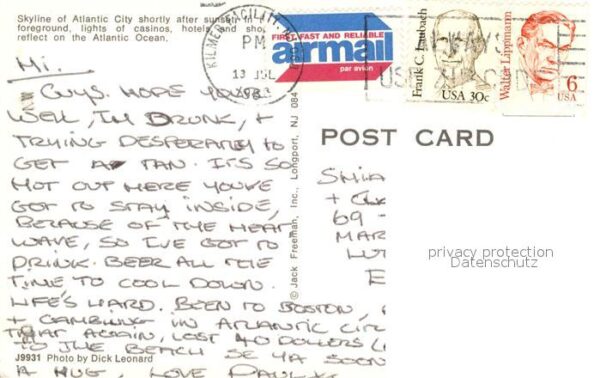 Skyline of Atlantic City shortly after sunset. In
foreground, lights of casinos, hotels, and shops
reflect on the Atlantic Ocean.
KILMER FACILITY
PM
13 JUL
FIRST FAST AND RELIABLE
airmail
par avion
Frank C. Laubach
USA 30c
ALWAYS
USE ZIP CODE
Walter Lippmann
6
USA
HI.
GUYS. HOPE YOU'RE
WELL, I'M DRUNK, +
TRYING DESPERATELY TO
GET A TAN. IT'S SO
HOT OUT HERE YOU'VE
GOT TO STAY INSIDE,
BECAUSE OF THE HEAT
WAVE, SO I'VE GOT TO
DRINK BEER ALL THE
TIME TO COOL DOWN.
LIFE'S HARD. BEEN TO BOSTON,
+ GAMBLING IN ATLANTIC CITY
THAT AGAIN, LOST 40 DOLLARS
TO THE BEACH SE YA SOON
A HUG, LOVE PAUL X
© Jack Freeman, Inc., Longport, NJ 084
POST CARD
+
69
MAR
LUT
E
privacy protection
Datenschutz
J9931 Photo by Dick Leonard